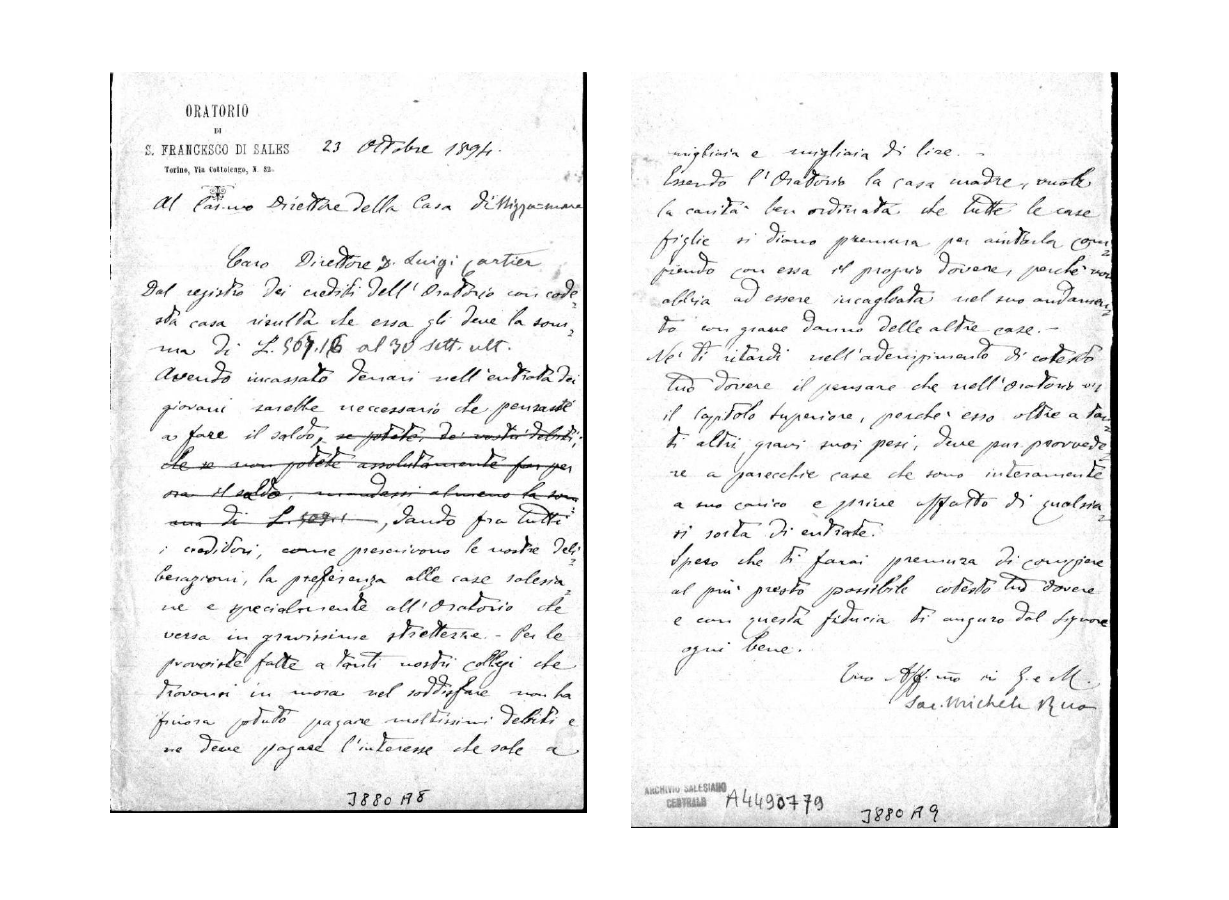 ORATORIO
DI
S. FRANCESCO DI SALES
Torino, Via Cottolengo, N. 32.
23 Ottobre 1894.
Al Car.mo Direttore della Casa di Nizza mare
Caro Direttore D. Luigi Cartier
Dal registro dei crediti dell'Oratorio con code=
sta casa risulta che essa gli deve la som=
ma di L. al 30 sett. ult.
Avendo incassato denari nell'entrata dei
giovani sarebbe neccessario che pensaste
a fare il saldo, se potete, dei vostri debiti;
che se non potete assolutamente far per
ora il saldo, mandassi almeno la som
ma di L. , dando fra tutti
i creditori, come prescrivono le nostre deli=
berazioni, la preferenza alle case salesia=
ne e specialmente all'Oratorio che
versa in gravissime strettezze. - Per le
provviste fatte a tanti nostri collegi che
trovansi in mora nel soddisfare non ha
finora potuto pagare moltissimi debiti e
ne deve pagare l'interesse che sale a
J880 A8
migliaia e migliaia di lire. -
Essendo l'Oratorio la casa madre, vuole
la carità ben ordinata che tutte le case
figlie si diano premura per aiutarla com=
piendo con essa il proprio dovere, perchè non
abbia ad essere incagliata nel suo andamen=
to con grave danno delle altre case. -
Nè ti ritardi nell'adempimento di cotesto
tuo dovere il pensare che nell'Oratorio vi
il Capitolo Superiore, perchè esso oltre a tan=
ti altri gravi suoi pesi, deve pur provvede=
re a parecchie case che sono interamente
a suo carico e prive affatto di qualsia=
si sorta di entrate.
Spero che ti farai premura di compiere
al più presto possibile cotesto tuo dovere
e con questa fiducia ti auguro dal Signore
ogni bene.
Tuo Aff.mo in G. e M.
Sac. Michele Rua
ARCHIVIO SALESIANO
CENTRALE
A4490779
J880 A9